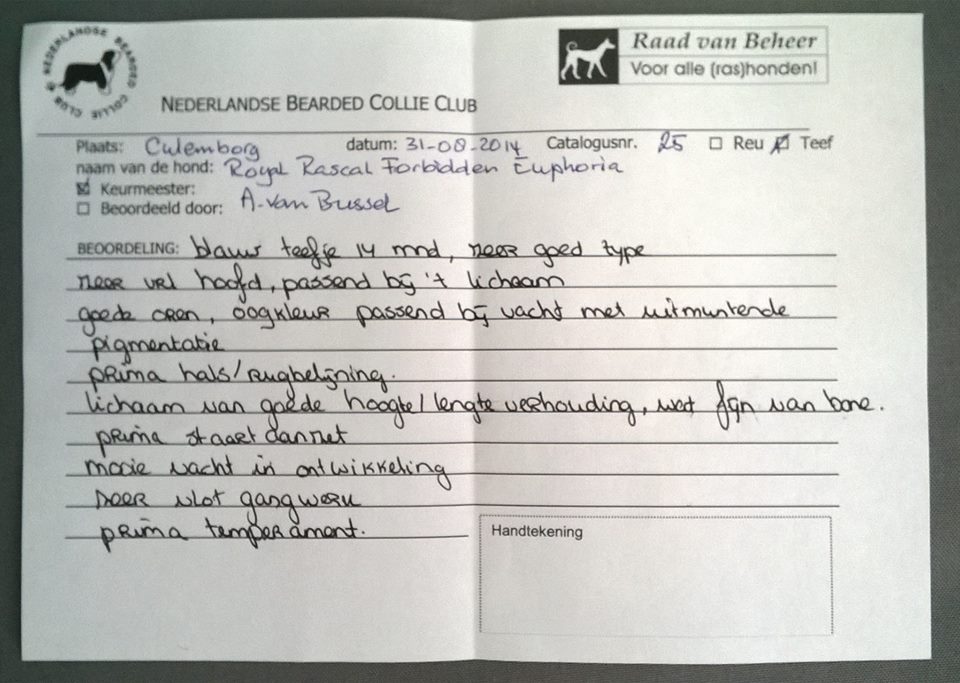 NEDERLANDSE BEARDED COLLIE CLUB
Raad van Beheer
Voor alle (ras)honden!
NEDERLANDSE BEARDED COLLIE CLUB
Plaats: Culemborg datum: 31-08-2014 Catalogusnr. 25 Reu Teef
naam van de hond: Royal Rascal Forbidden Euphoria
Keurmeester:
Beoordeeld door: A. van Brussel
BEOORDELING: blauw teefje 14 mnd, zeer goed type
zeer vrl hoofd, passend bij 't lichaam
goede oren, oogkleur passend bij vacht met uitmuntende
pigmentatie
prima hals/rugbelijning.
lichaam van goede hoogte/lengte verhouding, wat fijn van bone.
prima staartaanzet
mooie vacht in ontwikkeling
zeer vlot gangwerk
prima temperament.
Handtekening